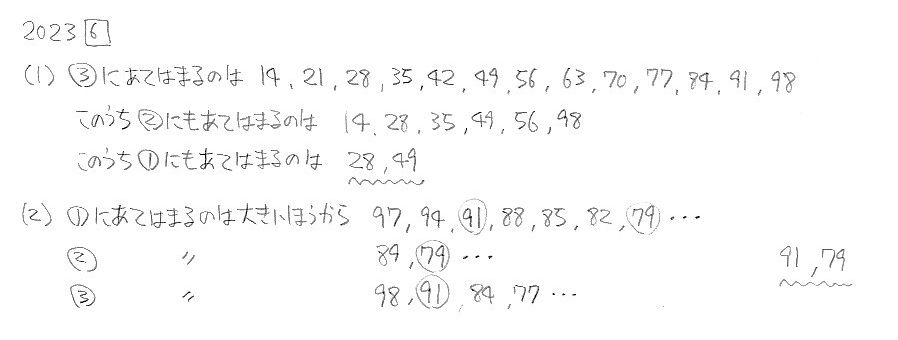 2023 6
(1) ③にあてはまるのは 14, 21, 28, 35, 42, 49, 56, 63, 70, 77, 84, 91, 98
このうち②にもあてはまるのは 14, 28, 35, 49, 56, 98
このうち①にもあてはまるのは 28, 49
(2) ①にあてはまるのは大きいほうから 97, 94, 91, 88, 85, 82, 79 …
② 〃 89, 79 … 91, 79
③ 〃 98, 91, 84, 77 …